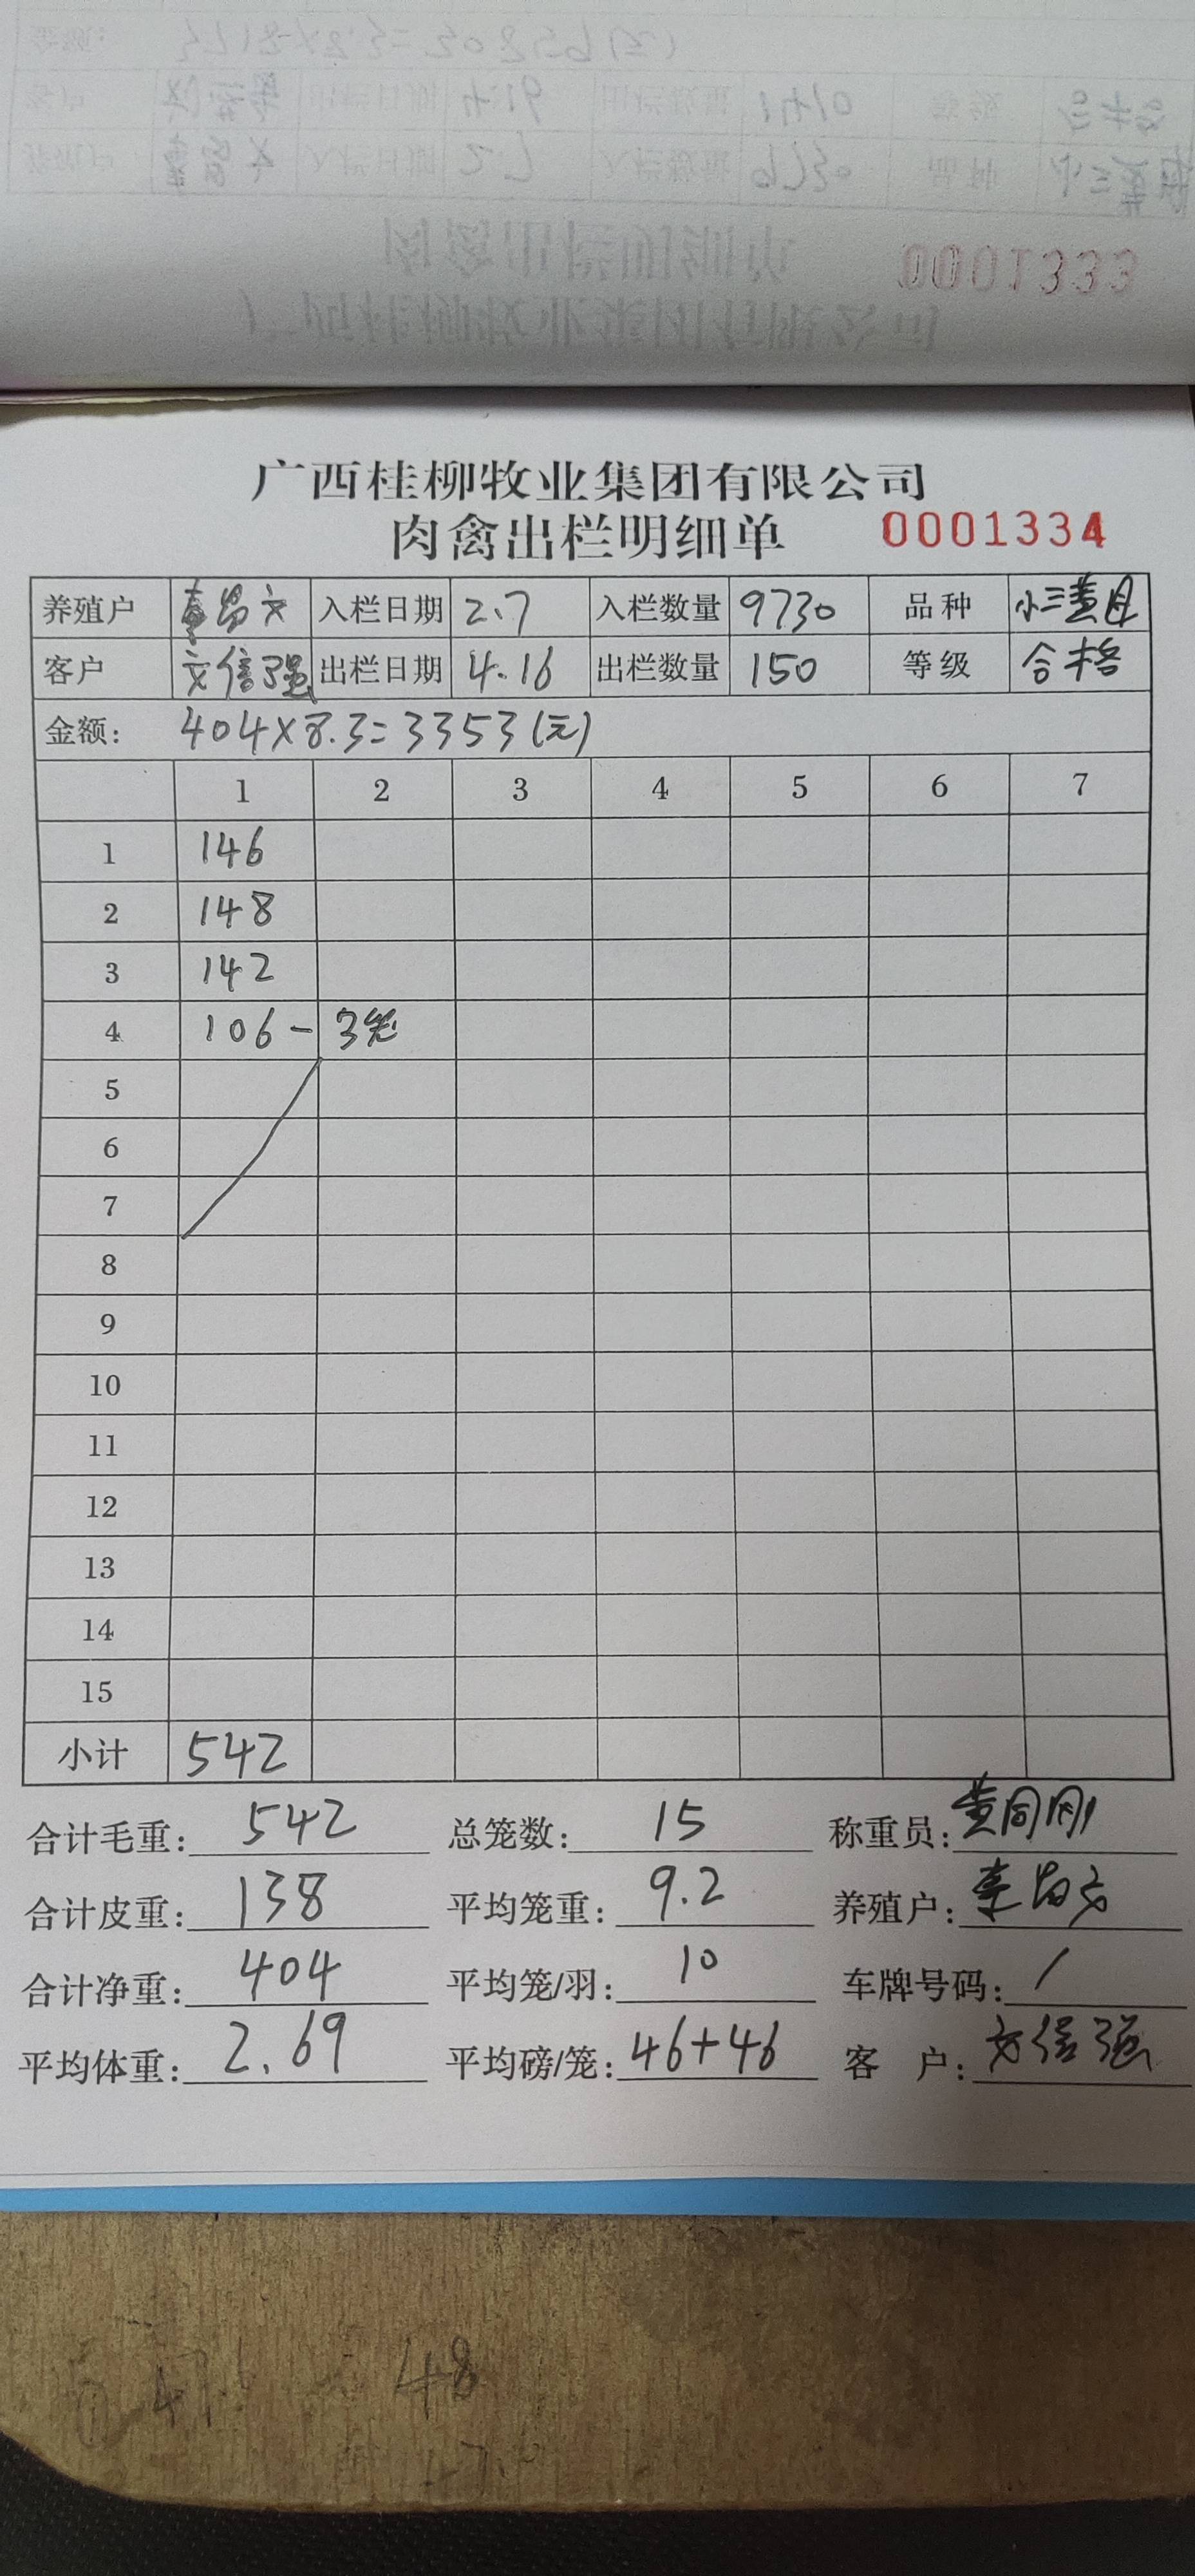 0001333
广西桂柳牧业集团有限公司
肉禽出栏明细单 0001334
养殖户 昌文 入栏日期 2.7 入栏数量 9730 品种 小三黄母
客户 信强 出栏日期 4.16 出栏数量 150 等级 合格
金额: 404×8.3=3353(元)
1 2 3 4 5 6 7
1 146
2 148
3 142
4 106-3笼
5
6
7
8
9
10
11
12
13
14
15
小计 542
合计毛重: 542 总笼数: 15 称重员: 黄同刚
合计皮重: 138 平均笼重: 9.2 养殖户:
合计净重: 404 平均笼/羽: 10 车牌号码: /
平均体重: 2.69 平均磅/笼: 46+46 客 户: 信强
48